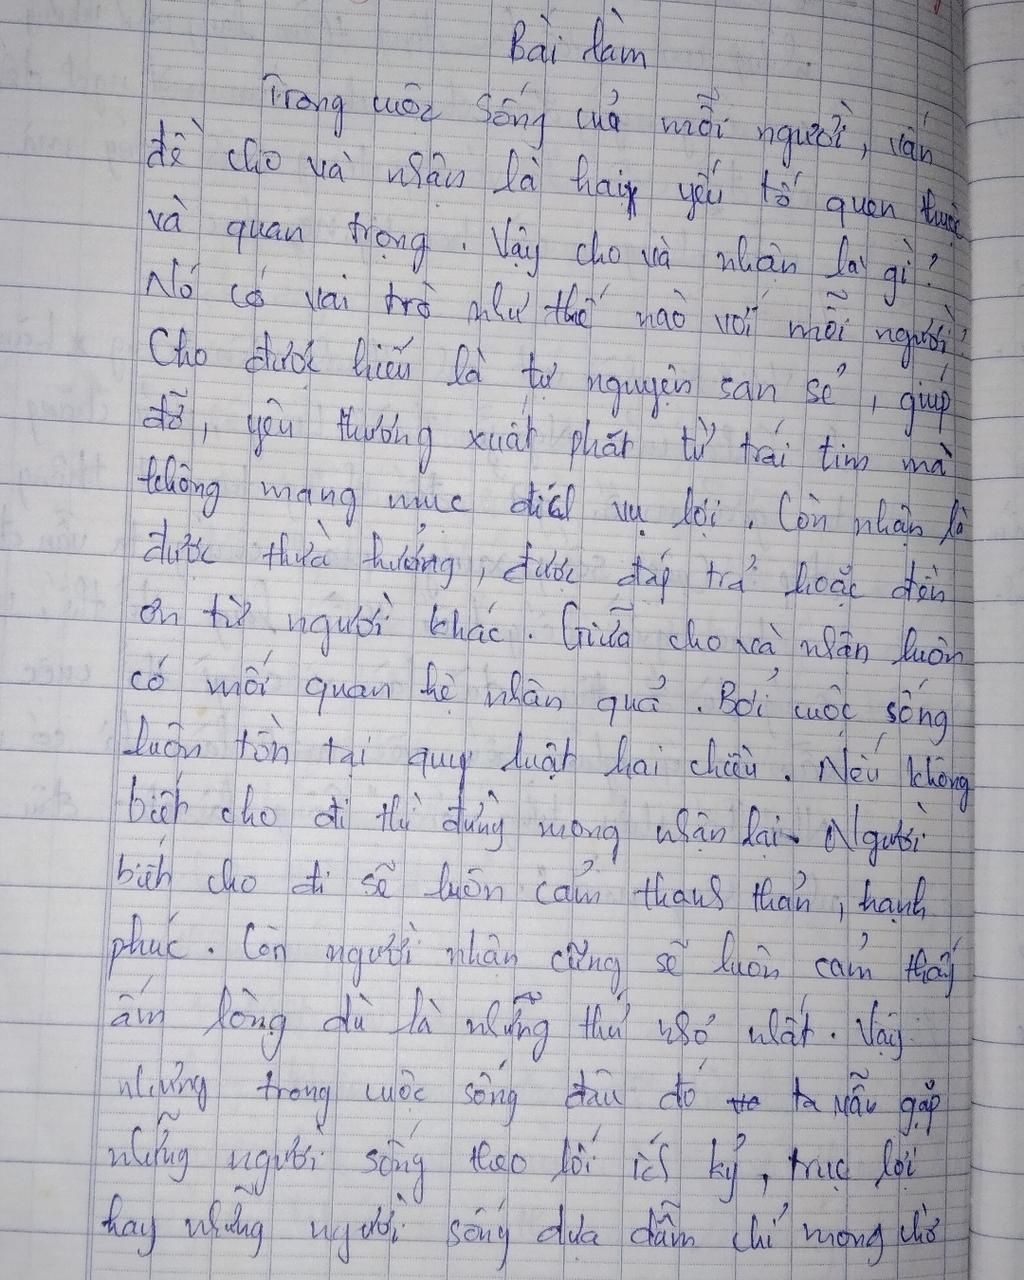 Bài làm
Trong cuộc sống của mỗi người, vấn
đề cho và nhận là hai yếu tố quen thuộc
và quan trọng. Vậy cho và nhận là gì?
Nó có vai trò như thế nào với mỗi người?
Cho được hiểu là tự nguyện san sẻ, giúp
đỡ, yêu thương xuất phát từ trái tim mà
không mang mục đích vụ lợi. Còn nhận là
được thừa hưởng, được đáp trả hoặc đền
ơn từ người khác. Giữa cho và nhận luôn
có mối quan hệ nhân quả. Bởi cuộc sống
luôn tồn tại quy luật hai chiều. Nếu không
biết cho đi thì đừng mong nhận lại. Người
biết cho đi sẽ luôn cảm thanh thản, hạnh
phúc. Còn người nhận cũng sẽ luôn cảm thấy
ấm lòng dù là những thứ nhỏ nhất. Vậy
nhưng trong cuộc sống đâu đó ta vẫn gặp
những người sống theo lối ích kỷ, trục lợi
hay những người sống dựa dẫm chỉ mong chờ